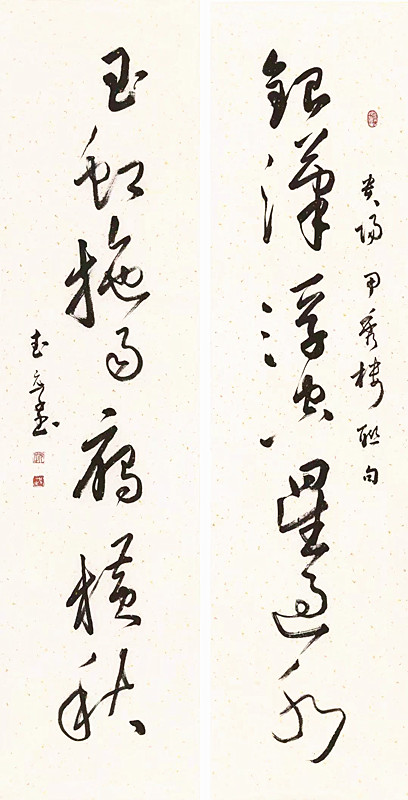 貴陽甲秀樓聯句
銀漢浮空星過水
玉虹拖雨雁橫秋